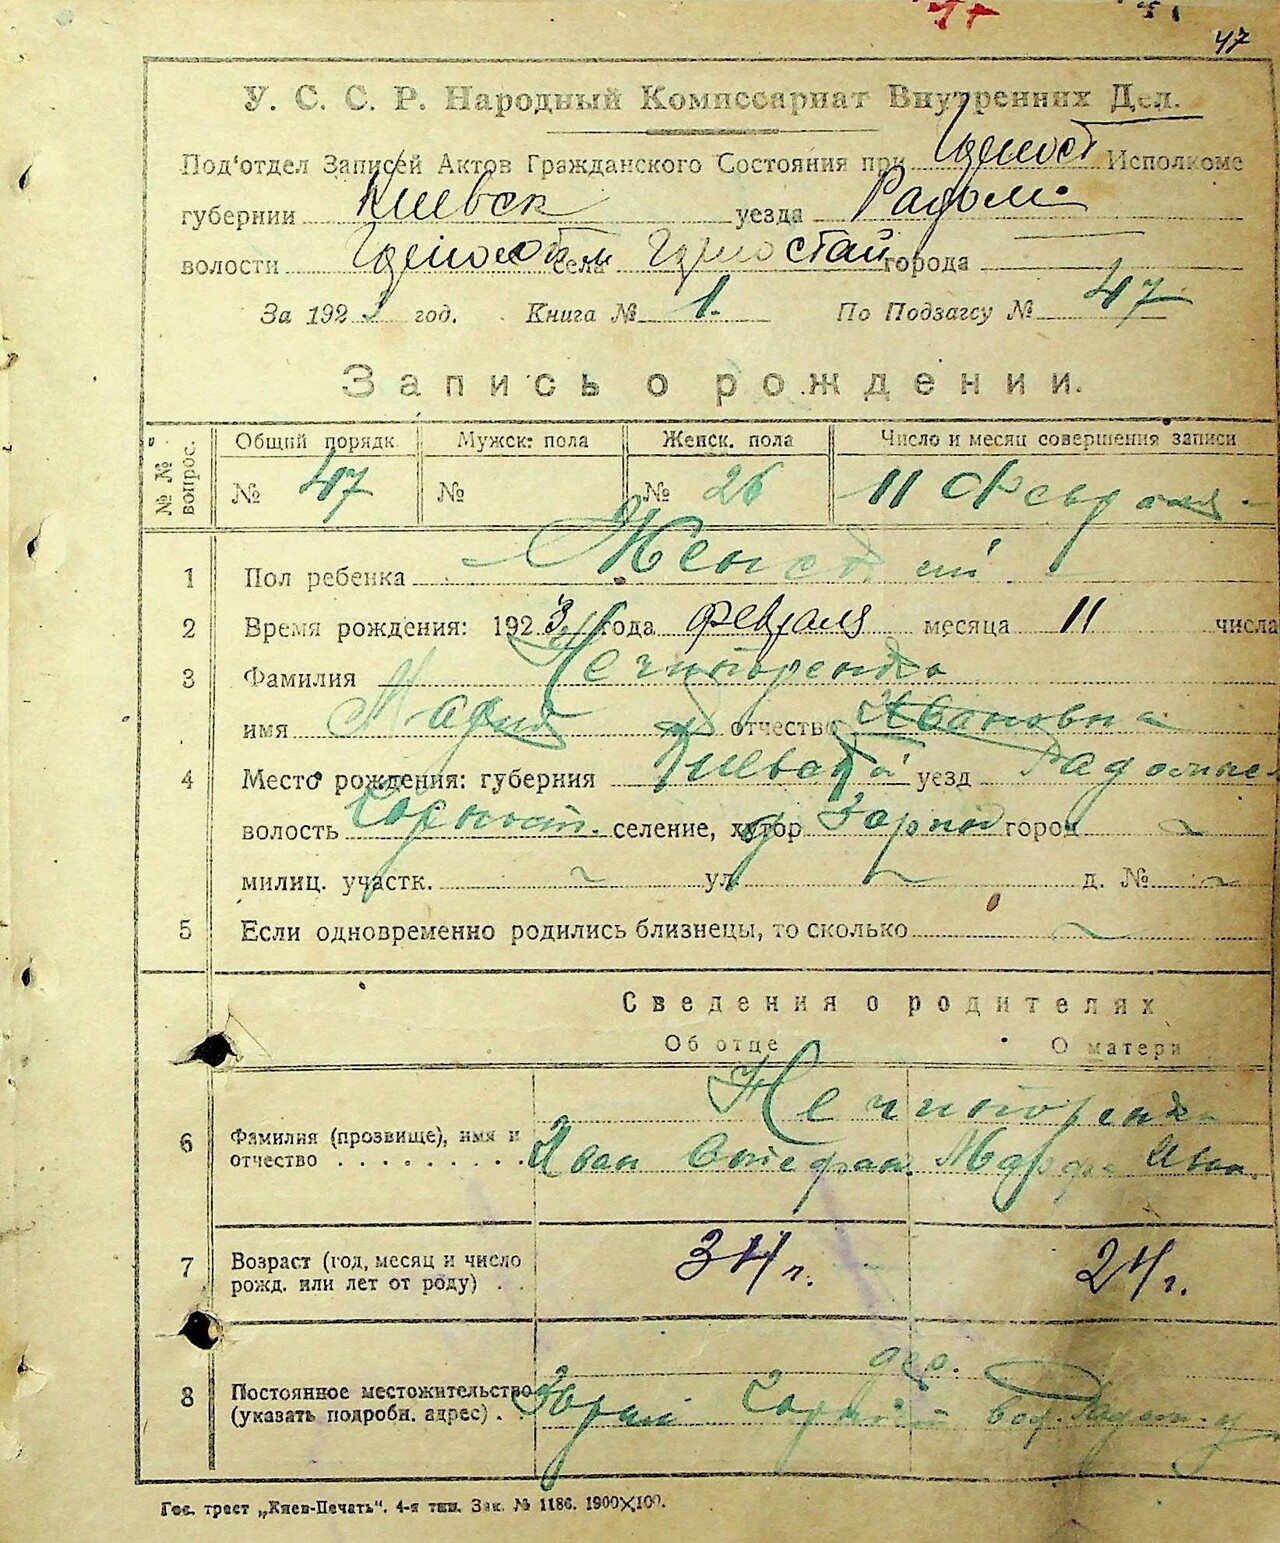 47
У. С. С. Р. Народный Комиссариат Внутренних Дел.
Под'отдел Записей Актов Гражданского Состояния при Исполкоме
губернии Киевск уезда Радом.
волости села города
За 1923 год. Книга № 1. По Подзагсу № 47
Запись о рождении.
№ № вопрос. Общий порядк. Мужск. пола Женск. пола Число и месяц совершения записи
№ 47 № № 26 11 Февраля
1 Пол ребенка Женский
2 Время рождения: 1923 года февраля месяца 11 числа
3 Фамилия Нечипоренко
имя Мария отчество Ивановна
4 Место рождения: губерния Киевской уезд
волость селение, хутор город
милиц. участк. ~ ул. ~ д. № ~
5 Если одновременно родились близнецы, то сколько ~
Сведения о родителях
Об отце О матери
Нечипоренко
6 Фамилия (прозвище), имя и
отчество . . . . . . . . . Иван Стефан. Марфа Иван.
7 Возраст (год, месяц и число
рожд. или лет от роду) . . 34 г. 24 г.
дер.
8 Постоянное местожительство
(указать подробн. адрес) . .
Гос. трест „Киев-Печать". 4-я тип. Зак. № 1186. 1900×100.